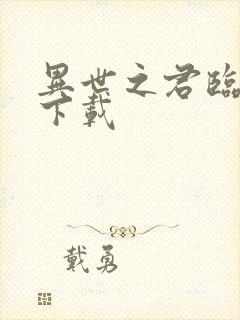 異世之君臨
下載
戴勇